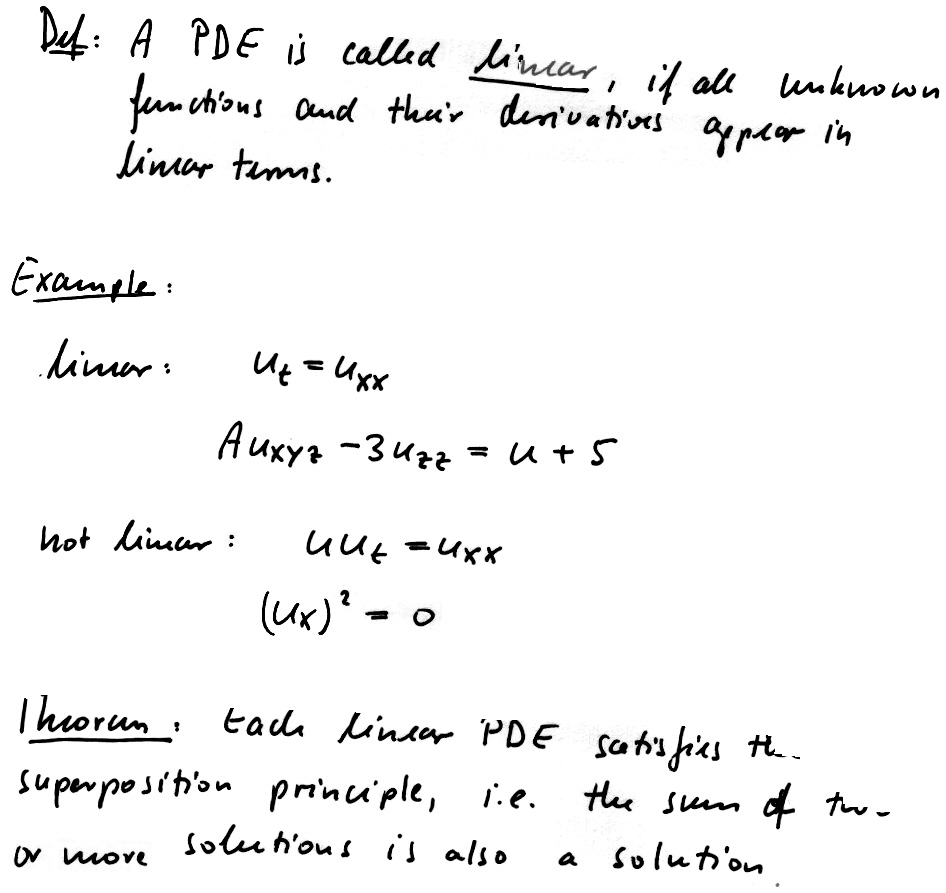 Def: A PDE is called linear, if all unknown
functions and their derivatives appear in
linear terms.
Example:
linear: u_t = u_xx
A u_xyz - 3 u_zz = u + 5
not linear: u u_t = u_xx
(u_x)² = 0
Theorem: Each linear PDE satisfies th
superposition principle, i.e. the sum of tw
or more solutions is also a solution.